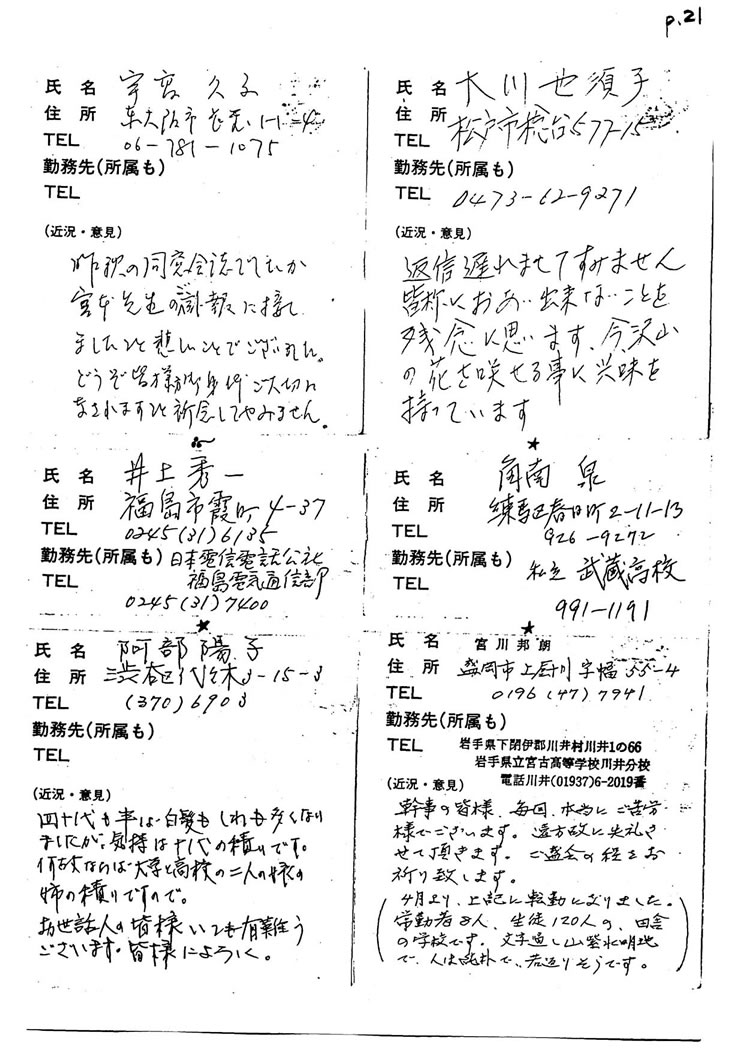 p.21
氏 名 宇宮 久子
住 所 東大阪市 1-1-4
TEL 06-781-1075
勤務先(所属も)
TEL
(近況・意見)
昨秋の同窓会誌でしたか
宮本先生の訃報に接し
ましたこと悲しいことでございました。
どうぞ皆様方御身御大切に
なされますこと祈念してやみません。
氏 名 大川 也須子
住 所 松戸市稔台577-15
TEL
勤務先(所属も)
TEL 0473-62-9271
(近況・意見)
返信遅れましてすみません
皆称におあい出来ないことを
残念に思います、今沢山
の花を咲せる事に興味を
持っています
氏 名 井上秀一
住 所 福島市霞町4-37
TEL 0245(31)6135
勤務先(所属も) 日本電信電話公社
TEL 福島電気通信部
0245(31)7400
氏 名 角南 泉
住 所 練馬区春日町2-11-13
TEL 926-9272
勤務先(所属も) 私立 武蔵高校
TEL
991-1191
氏 名 阿部陽子
住 所 渋谷区代々木3-15-3
TEL (370)6903
勤務先(所属も)
TEL
(近況・意見)
四十代も半ば、白髪もしわも多くなり
ましたが、気持は十代の積りです。
何故ならば大学と高校の二人の娘の
姉の積りですので。
お世話人の皆様いつも有難う
ございます。皆様によろしく。
氏 名 宮川邦朗
住 所 盛岡市上厨川字幅55-4
TEL 0196(47)7941
勤務先(所属も)
TEL 岩手県下閉伊郡川井村川井1の66
岩手県立宮古高等学校川井分校
電話川井(01937)6-2019番
(近況・意見)
幹事の皆様、毎回、本当にご苦労
様でございます。遠方故に失礼さ
せて頂きます。ご盛会の程をお
祈り致します。
(4月より、上記に転勤になりました。
常勤者8人、生徒120人の、田舎
の学校です。文字通り山紫水明地
で、人は純朴で、若返りそうです。)